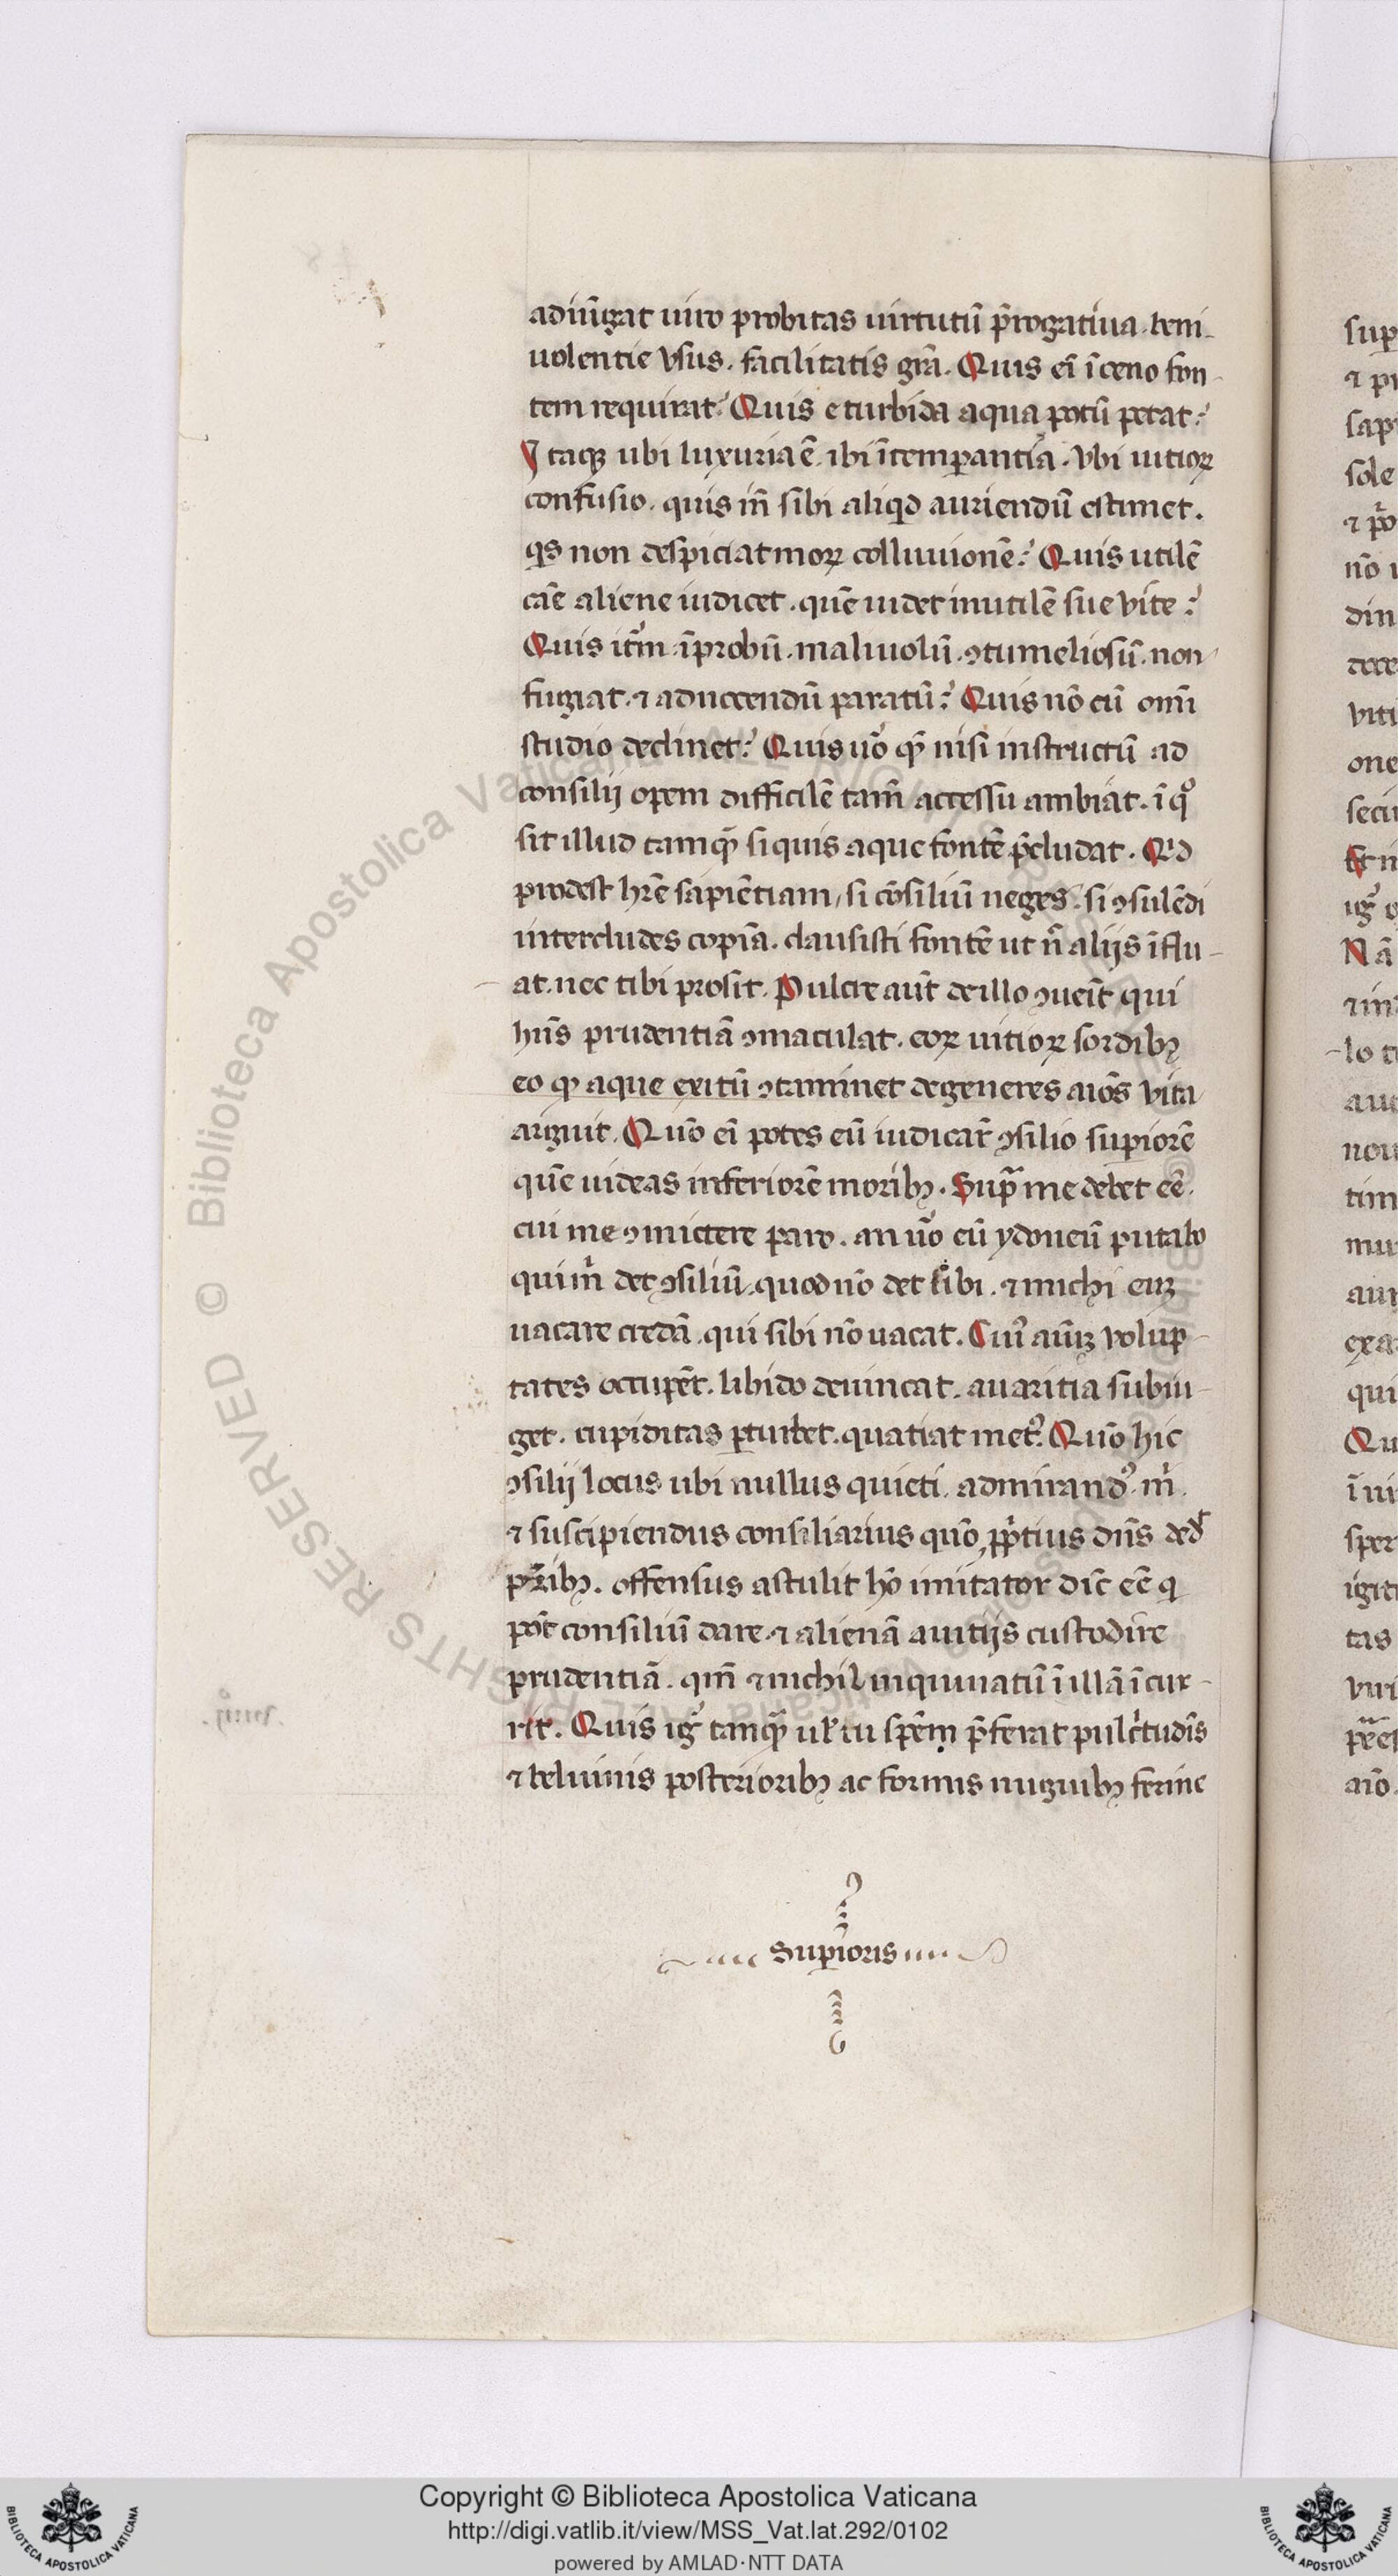 adiūgat uiro probitas uirtutū p̄rogatiua. beni-
uolentie vsus. facilitatis gr̄a. Quis ei̅ i̅ ceno fon-
tem requirat? Quis e turbida aqua potū petat?
Itaqꝫ ubi luxuria ē. ibi i̅temꝑantia. vbi uitioꝝ
confusio. quis in̄ sibi aliqd auriendū estimet.
qs non despiciat moꝝ colluuionē? Quis utilē
cāe aliene iudicet. quē uidet inutilē sue vite?
Quis it̄m i̅probū. maliuolū. ꝯtumeliosū. non
fugiat. ⁊ ad nocendū paratū? Quis nō cū om̄i
studio declinet? Quis uo̅ qꝫ nisi instructū ad
consilij opem difficilē tam̄ accessu ambiat. i̅ qͦ
sit illud tamqꝫ si quis aque fontē p̄cludat. Qid
prodest hr̄e sapiētiam, si cōsiliū neges. si ꝯsulēdi
intercludes copiā. clausisti fontē ut n̄ alijs i̅flu-
at. nec tibi prosit. Pulcre aūt de illo ꝯueīt qui
hn̄s prudentiā ꝯmaculat. eoꝝ uitioꝝ sordibꝫ
eo ꝙ aque exitū ꝯtaminet degeneres aīos vita
arguit. Quō ei̅ potes eū iudicar̄ ꝯsilio suꝑiorē
quē uideas inferiorē moribꝫ. Supͣ me debet eē.
cui me ꝯmictere paro. an uo̅ eū ydoneū putabo
qui m̄ det ꝯsiliū. quod nō det sibi. ⁊ michi eūꝫ
uacare credā. qui sibi nō uacat. Cuiꝰ aīūꝫ volup-
tates occupēt. libido deuincat. auaritia subiu-
get. cupiditas ꝑturbet. quatiat metꝰ. Quō hic
ꝯsilij locus ubi nullus quieti. admirandꝰ m̄.
⁊ suscipiendus consiliarius quō ꝓpitius dn̄s ded̄
pr̄ibꝫ. offensus astulit hō imitator dīc eē q
pōt consiliū dare. ⁊ alienā a uitijs custodire
prudentiā. qm̄ ⁊ nichil inquinatū i̅ illā i̅cur-
rit. Quis ig̅ tanqꝫ ul̄ tu spēm p̄ferat pulcͥtudīs
⁊ beluinis posterioribꝫ ac formis unguibꝫ ferine
Suꝑioris